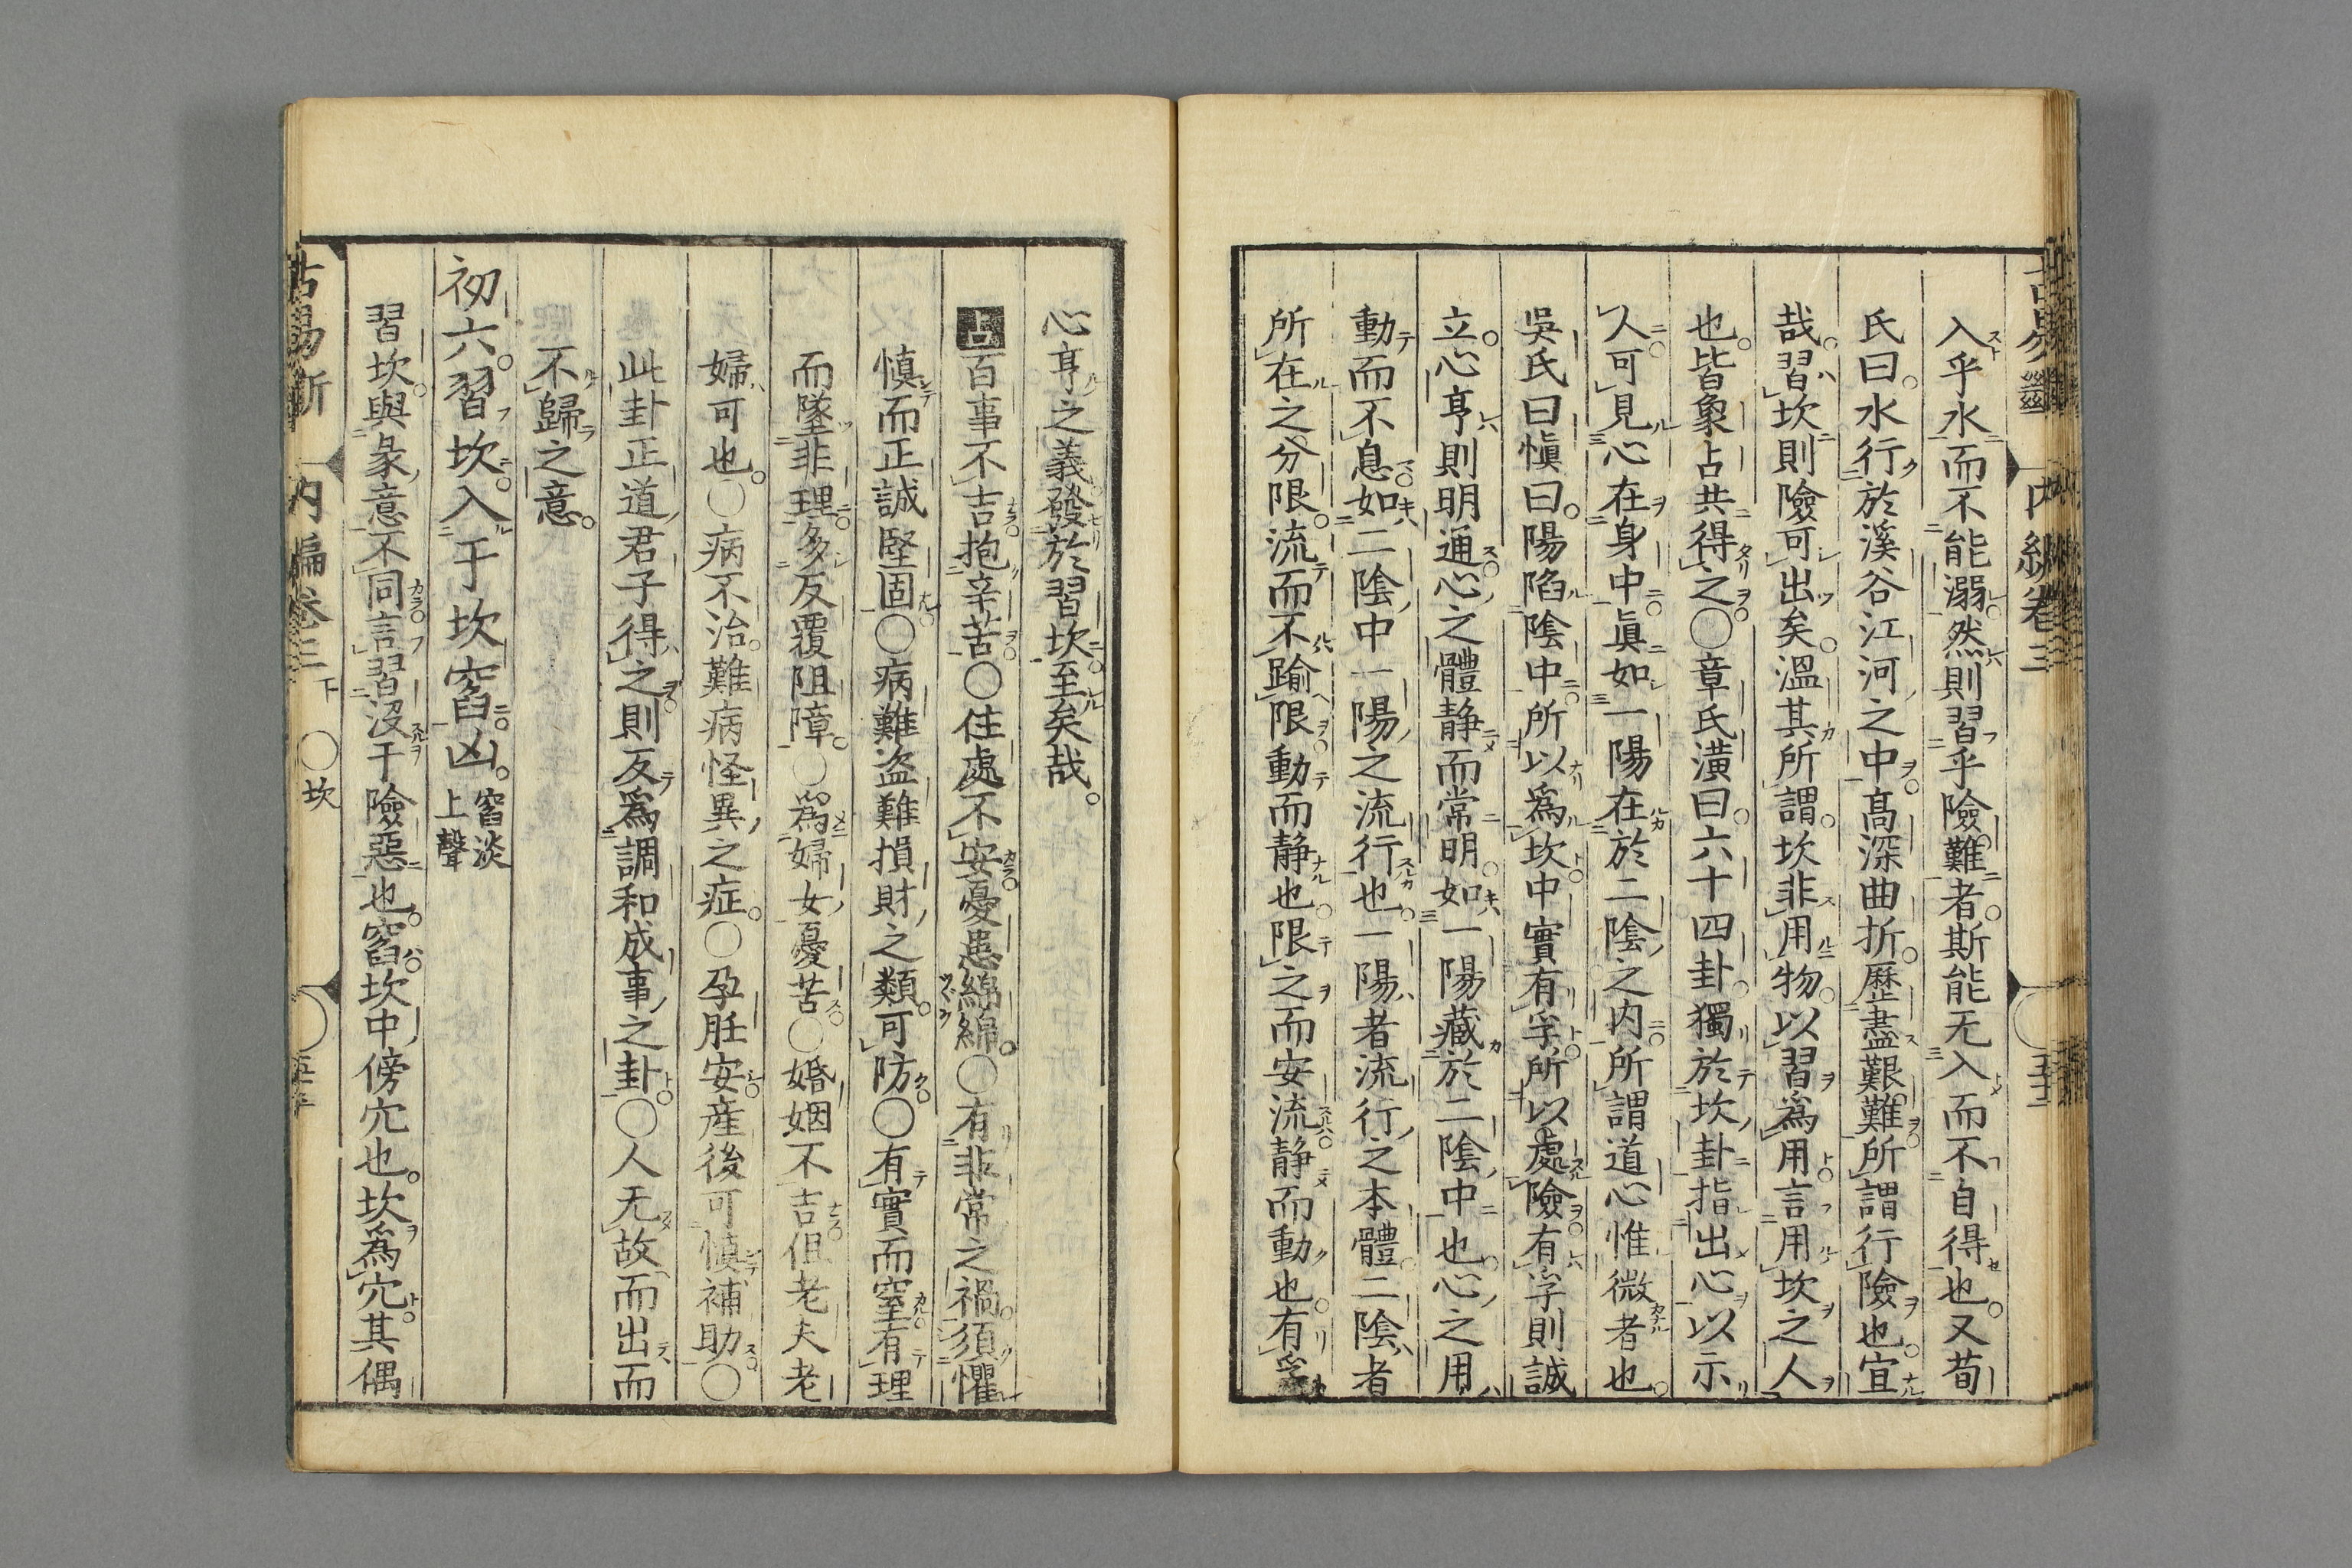 入乎水而不能溺然則習乎險難者斯能无入而不自得也又荀
氏曰水行於溪谷江河之中高深曲折歷盡艱難所謂行險也宜
哉習坎則險可出矣溫其所謂坎非用物以習爲用言用坎之人
也皆象占共得之〇章氏潢曰六十四卦獨於坎卦指出心以示
人可見心在身中眞如一陽在於二陰之内所謂道心惟微者也
吳氏曰愼曰陽陷陰中所以爲坎中實有孚所以處險有孚則誠
立心亨則明通心之體静而常明如一陽藏於二陰中也心之用
動而不息如二陰中一陽之流行也一陽者流行之本體二陰者
所在之分限流而不踰限動而静也限之而安流静而動也有孚
心亨之義發於習坎至矣哉
占百事不吉抱辛苦〇住處不安憂患綿綿〇有非常之禍須懼
慎而正誠堅固〇病難盗難損財之類可防〇有實而窒有理
而墜非理多反覆阻障〇爲婦女憂苦〇婚姻不吉但老夫老
婦可也〇病不治難病怪異之症〇孕胎安産後可慎補助〇
此卦正道君子得之則反爲調和成事之卦〇人无故而出而
不歸之意
初六習坎入于坎窞凶 窞淡上聲
習坎與彖意不同言習沒于險惡也窞坎中傍穴也坎爲穴其偶
占易斷 内編卷三 下 〇坎